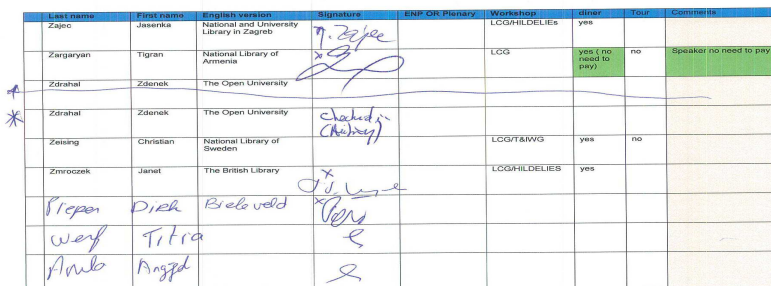 Last name First name English version Signature ENP OR Plenary Workshop diner Tour Comments
Zajec Jasenka National and University LCG/HILDELIEs yes
Library in Zagreb
Zargaryan Tigran National Library of LCG yes ( no no Speaker no need to pay
Armenia need to
pay)
Zdrahal Zdenek The Open University
Zdrahal Zdenek The Open University Checked in
Zeising Christian National Library of LCG/T&IWG yes no
Sweden
Zmroczek Janet The British Library LCG/HILDELIES yes
Pieper Dirk Bieleveld
Werf Titia